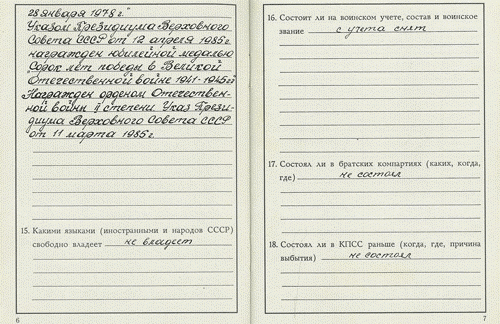 28 января 1978 г."
Указом Президиума Верховного
Совета СССР от 12 апреля 1985г.
награжден юбилейной медалью
Сорок лет победы в Великой
Отечественной войне 1941-1945гг
Награжден орденом Отечествен-
ной войны II степени Указ Прези-
диума Верховного Совета СССР
от 11 марта 1985г.
15. Какими языками (иностранными и народов СССР)
свободно владеет не владеет
6
16. Состоит ли на воинском учете, состав и воинское
звание с учета снят
17. Состоял ли в братских компартиях (каких, когда,
где) не состоял
18. Состоял ли в КПСС раньше (когда, где, причина
выбытия) не состоял
7